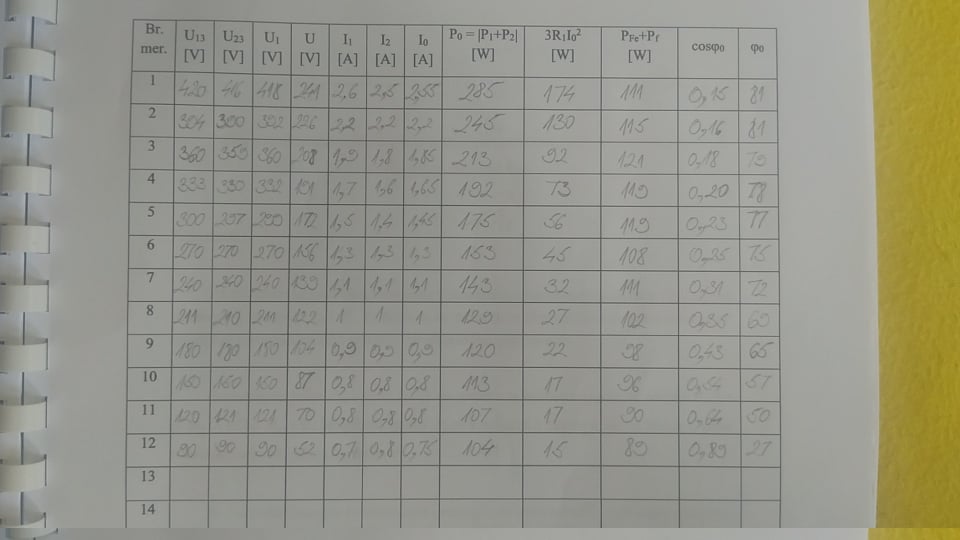 Br. mer. U13 [V] U23 [V] U1 [V] U [V] I1 [A] I2 [A] I0 [A] P0 = |P1+P2| [W] 3R1I0² [W] PFe+Pf [W] cosφ0 φ0
1 420 416 418 241 2,6 2,5 2,55 285 174 111 0,15 81
2 394 390 392 226 2,2 2,2 2,2 245 130 115 0,16 81
3 360 359 360 208 1,9 1,8 1,85 213 92 121 0,18 79
4 333 330 332 191 1,7 1,6 1,65 192 73 119 0,20 78
5 300 297 299 172 1,5 1,4 1,45 175 56 119 0,23 77
6 270 270 270 156 1,3 1,3 1,3 153 45 108 0,25 75
7 240 240 240 139 1,1 1,1 1,1 143 32 111 0,31 72
8 211 210 211 122 1 1 1 129 27 102 0,35 69
9 180 180 180 104 0,9 0,9 0,9 120 22 98 0,43 65
10 150 150 150 87 0,8 0,8 0,8 113 17 96 0,54 57
11 120 121 121 70 0,8 0,8 0,8 107 17 90 0,64 50
12 90 90 90 52 0,7 0,8 0,75 104 15 89 0,89 27
13
14